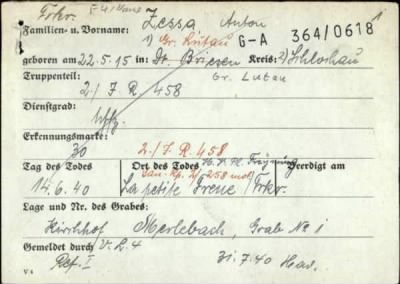 Frkr.
Familien- u. Vorname: Zessa Anton
1) Gr. Lutau G-A 364/0618
geboren am 22.5.15 in: Dt. Briesen Kreis: 2) Schlochau
Truppenteil: Gr. Lutau
2./ J. R. 458
Dienstgrad:
Uffz.
Erkennungsmarke:
30 2./J. R. 458
Tag des Todes Ort des Todes Beerdigt am
San. Kp. 2/258 mot.
14.6.40 La petite /Frkr.
Lage und Nr. des Grabes:
Kirchhof Merlebach, Grab No 1
Gemeldet durch V. L. 4
Ref. I 31.7.40
V 4